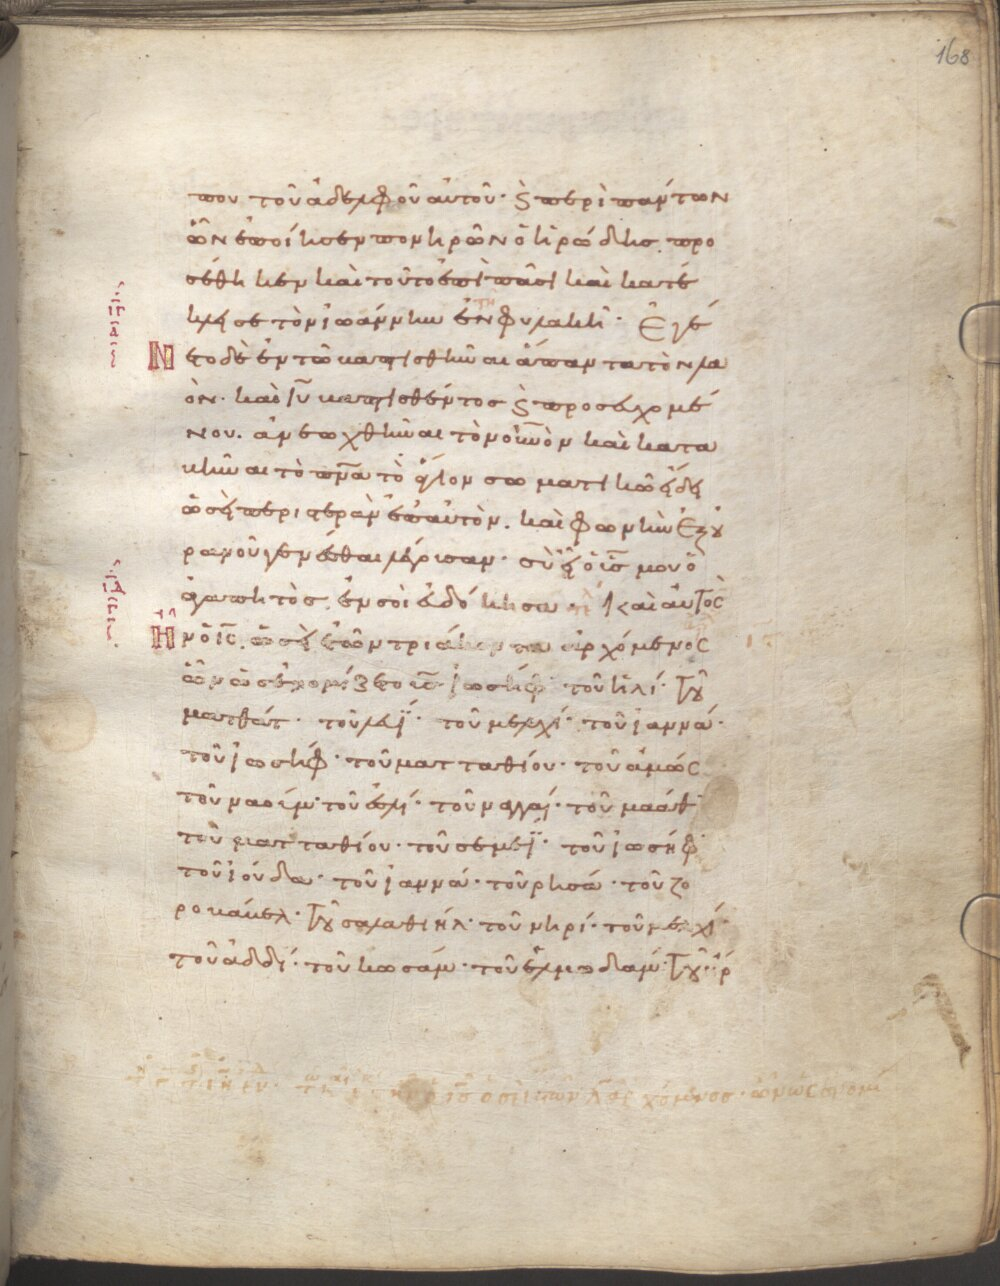 168
που τοῦ ἀδελφοῦ αὐτοῦ· ϛ περὶ πάντων
ὧν ἐποίησεν πονηρῶν ὁ ἡρώδης. προ
σέθηκεν καὶ τοῦτο ἐπὶ πᾶσι καὶ κατέ
κλεισε τὸν ἰωάννην ἐν τῆ φυλακῆ· Ἐγέ
Νετο δὲ ἐν τῶ βαπτισθῆναι ἅπαντα τὸν λα
ὸν· καὶ ιυ βαπτισθέντος ϛ προσευχομέ
νου. ἀνεωχθῆναι τὸν οὐνὸν καὶ κατα
βῆναι τὸ πνα τὸ ἅγιον σωματικῶ εἴδει
ὡσεὶ περιστερὰν ἐπ αὐτὸν. καὶ φωνὴν ἐξ οὐ
ρανοῦ γενέσθαι λέγουσαν· σὺ εἶ ὁ υἱς μου ὁ
ἀγαπητὸς ἐν σοὶ εὐδόκησα· καὶ αὐτὸς
Ἦν ὁ ις. ὡσεὶ ἐτῶν τριάκοντα ἀρχόμενος
ὢν ὡς ἐνομίζετο υς ἰωσὴφ· τοῦ ἡλί· τοῦ
ματθάτ· τοῦ λευΐ· τοῦ μελχί· τοῦ ἰαννά·
τοῦ ἰωσήφ· τοῦ ματταθίου· τοῦ ἀμώς
τοῦ ναούμ· τοῦ ἐσλί· τοῦ ναγγαί· τοῦ μαάθ·
τοῦ ματταθίου· τοῦ σεμεΐ· τοῦ ἰωσήφ·
τοῦ ἰούδα· τοῦ ἰαννά· τοῦ ρησά· τοῦ ζο
ροβάβελ· τοῦ σαλαθιήλ· τοῦ νηρί· τοῦ μελχί·
τοῦ ἀδδί· τοῦ κωσάμ· τοῦ ἐλμωδάμ· τοῦ ἤρ